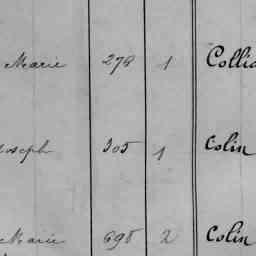 Marie 278 1 Collia
Joseph 305 1 Colin
Marie 698 2 Colin